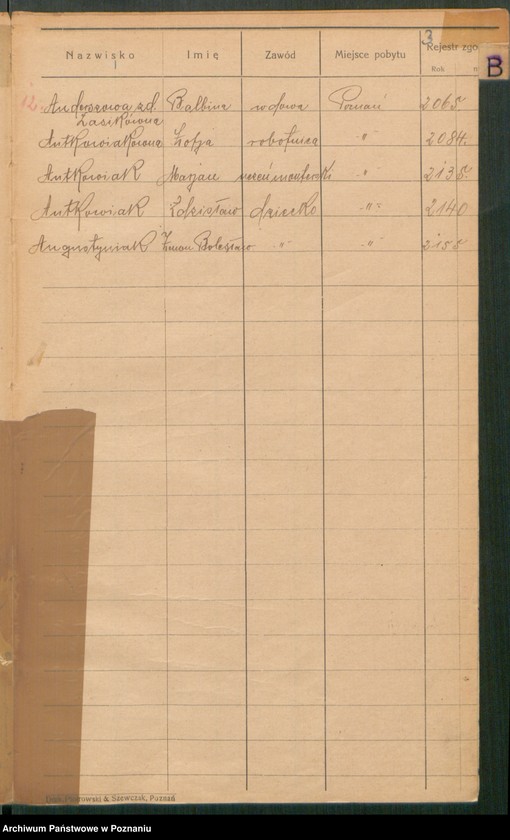 3
Nazwisko Imię Zawód Miejsce pobytu Rejestr zgo
Rok
B
12. Balbina wdowa Poznań 2065
Antkowiakówna Zofja robotnica -"- 2084
Antkowiak Marjan uczeń monterski -"- 2135
Antkowiak Zdzisław dziecko -"- 2140
Augustyniak Zenon Bolesław -"- -"- 2155
Druk. Piotrowski & Szewczak, Poznań
Archiwum Państwowe w Poznaniu